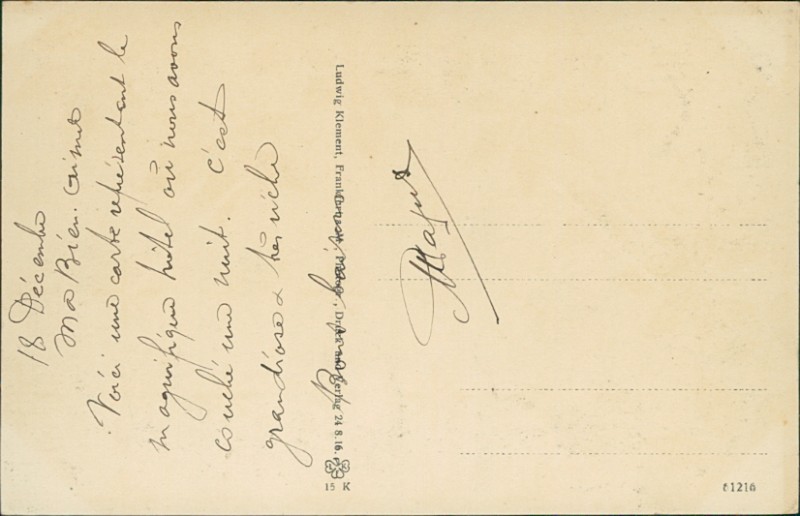 18 Décembre
Ma Bien. Aimée
Voici une carte représentant le
magnifique hôtel où nous avons
couché une nuit. C'est
grandiose & très riche
Ludwig Klement, Frankfurt
Verlag 24.8.16.
15 K
61216